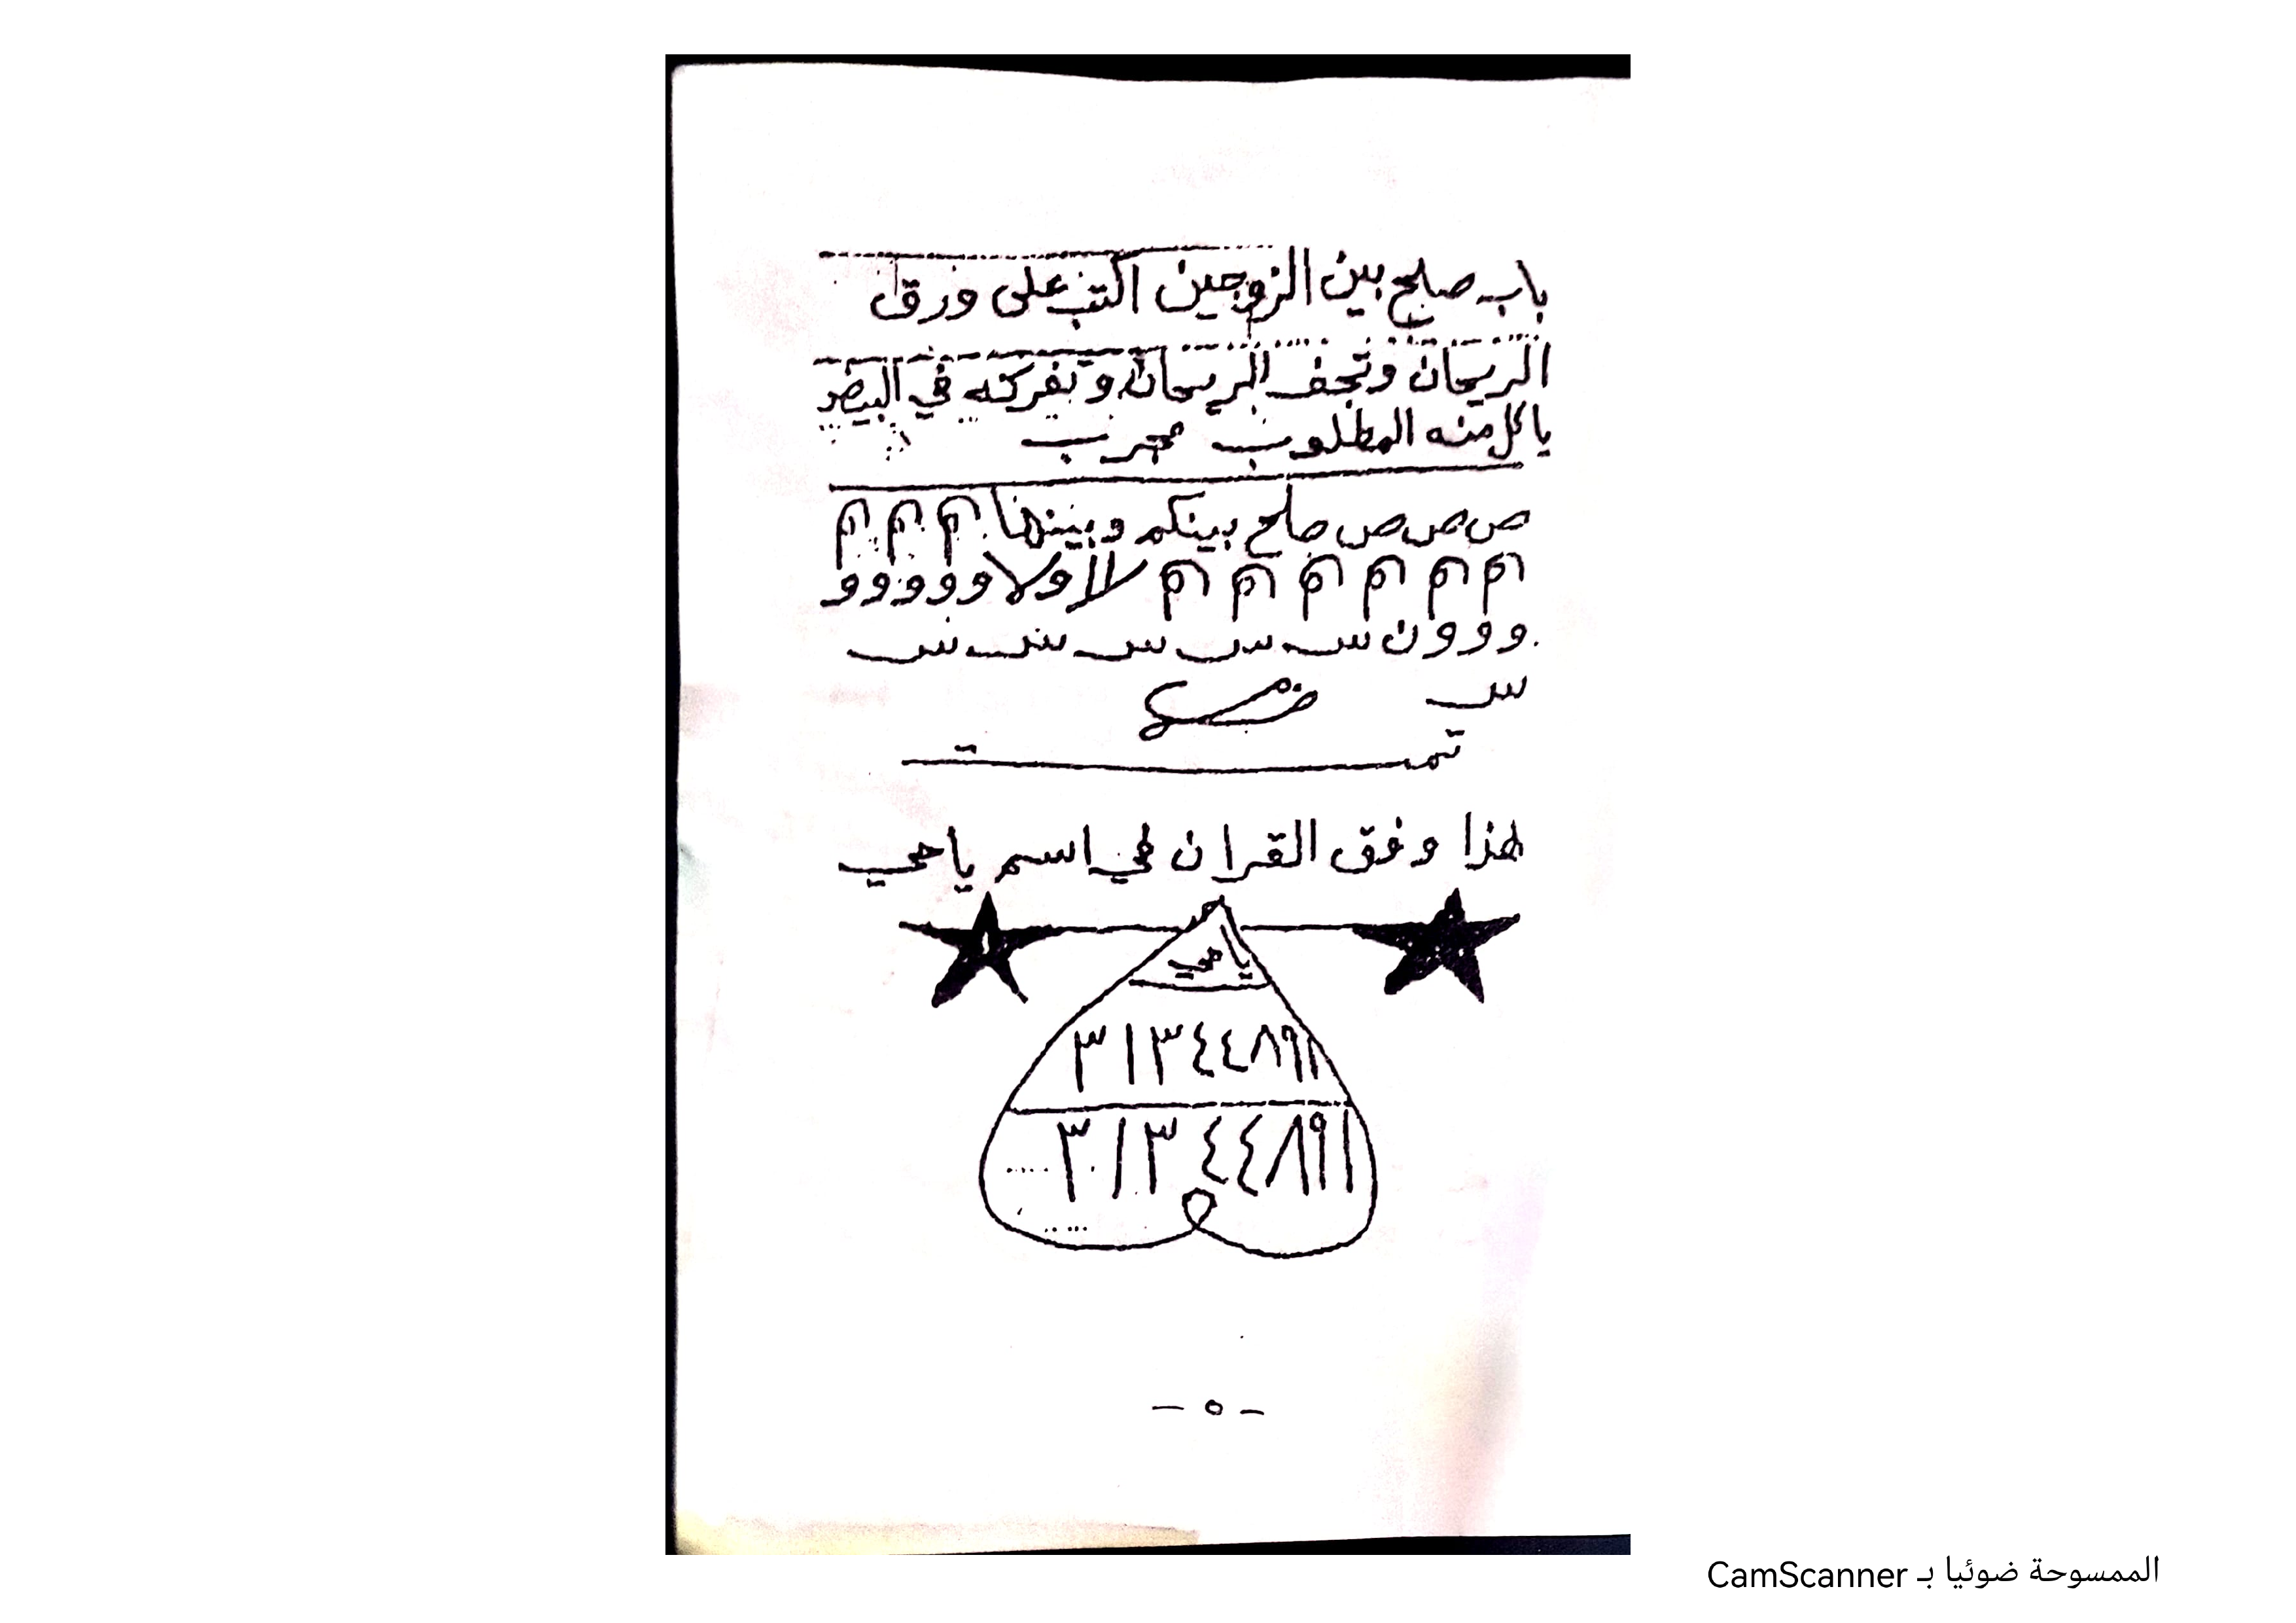 باب صلح بين الزوجين اكتب على ورق
الريحان وتجفف الريحان وتفركه في البيض
ياكل منه المطلوب مجرب
ص ص ص ص صلح بينكم وبينها م م م
م م م م م م لا ا ولا و و و و و
و و و ن س س س س س
س
تمت
هذا وفق القران في اسم ياحي
ياحي
١٩٨٤٤٣١٣
١٩٨٤٤٣١٣
- ٥ -
الممسوحة ضوئيا بـ CamScanner